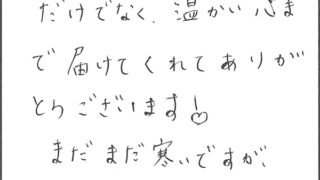 だけでなく、温かい心ま
で届けてくれてありが
とうございます!
まだまだ寒いですが、